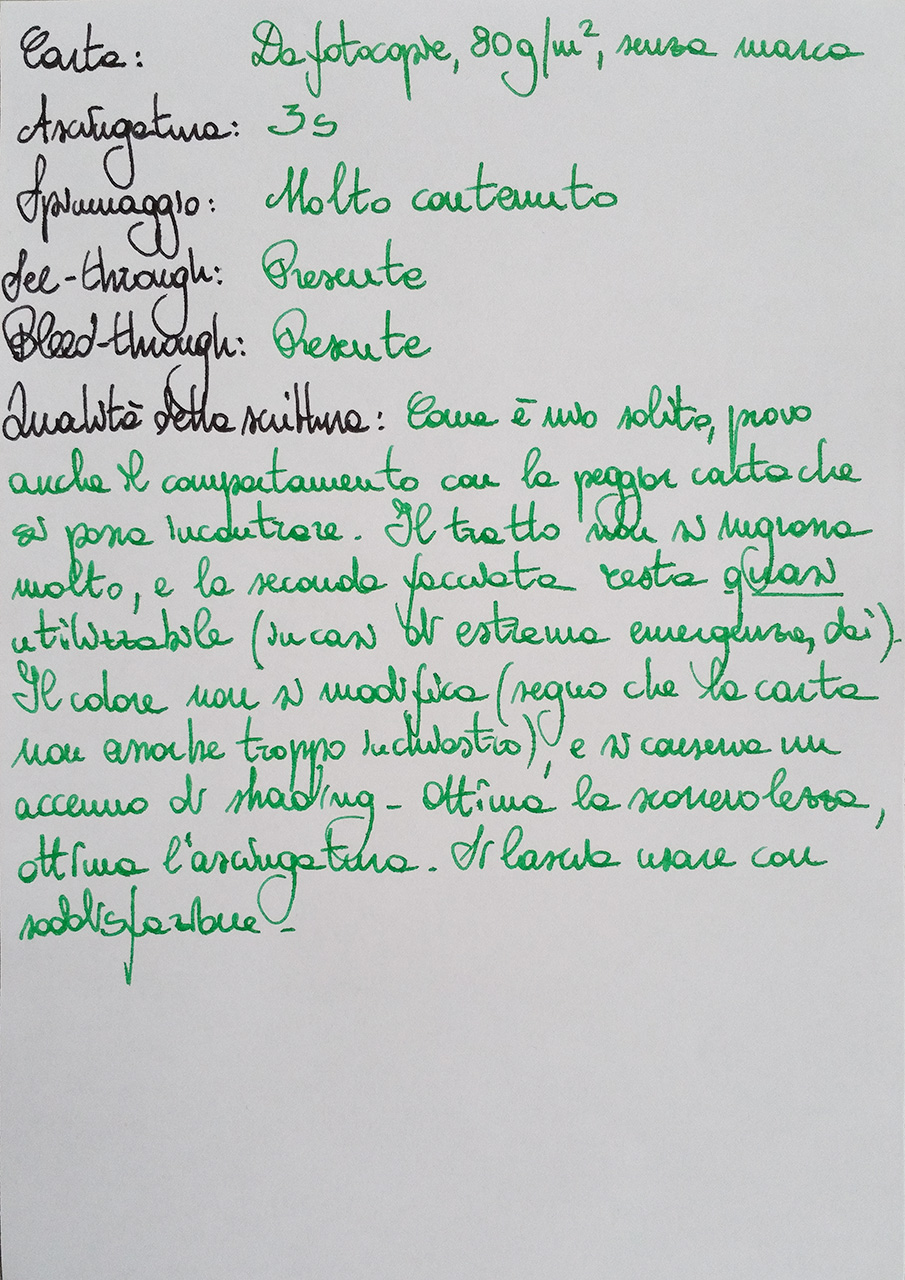 Carta: Da fotocopie, 80g/m², senza marca
Asciugatura: 3s
Spiumaggio: Molto contenuto
See-through: Presente
Bleed-through: Presente
Qualità della scrittura: Come è mio solito, provo
anche il comportamento con la peggior carta che
si possa incontrare. Il tratto non si ingrossa
molto, e la seconda facciata resta quasi
utilizzabile (in casi di estrema emergenza, dai).
Il colore non si modifica (segno che la carta
non assorbe troppo inchiostro), e si conserva un
accenno di shading. Ottima la scorrevolezza,
ottima l'asciugatura. Si lascia usare con
soddisfazione.